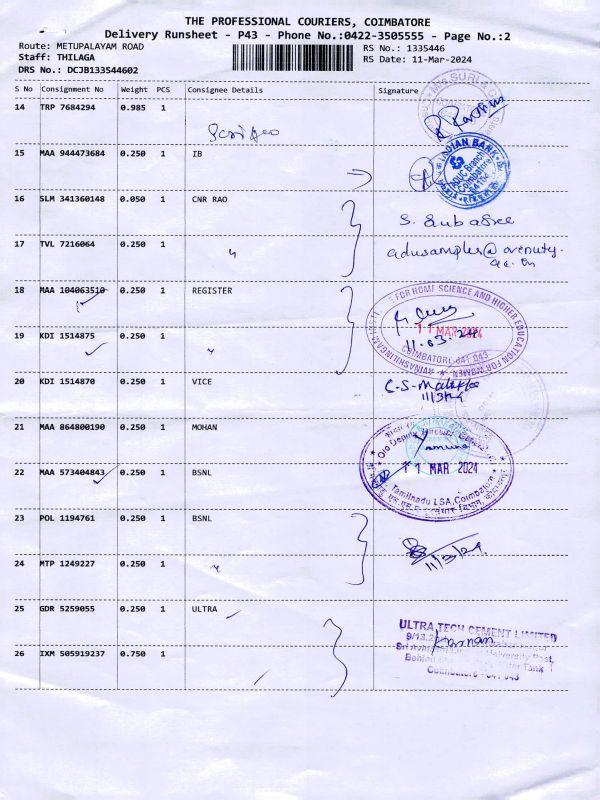 THE PROFESSIONAL COURIERS, COIMBATORE
Delivery Runsheet - P43 - Phone No.:0422-3505555 - Page No.:2
Route: METUPALAYAM ROAD
RS No.: 1335446
Staff: THILAGA
RS Date: 11-Mar-2024
DRS No.: DCJB133544602
S No Consignment No Weight PCS Consignee Details Signature
14 TRP 7684294 0.985 1
15 MAA 944473684 0.250 1 IB
INDIAN BANK
Coimbatore
16 SLM 341360148 0.050 1 CNR RAO
17 TVL 7216064 0.250 1 "
18 MAA 104063510 0.250 1 REGISTER
FOR HOME SCIENCE AND HIGHER EDUCATION FOR WOMEN
11 MAR 2024
11.03.24
COIMBATORE-641 043
19 KDI 1514875 0.250 1 "
20 KDI 1514870 0.250 1 VICE
11/3/24
21 MAA 864800190 0.250 1 MOHAN
O/o Deputy Director General
Yamuna
11 MAR 2024
Tamilnadu LSA, Coimbatore
22 MAA 573404843 0.250 1 BSNL
23 POL 1194761 0.250 1 BSNL
11/3/24
24 MTP 1249227 0.250 1 "
25 GDR 5259055 0.250 1 ULTRA
ULTRA TECH CEMENT LIMITED
26 IXM 505919237 0.750 1
Coimbatore - 641 043